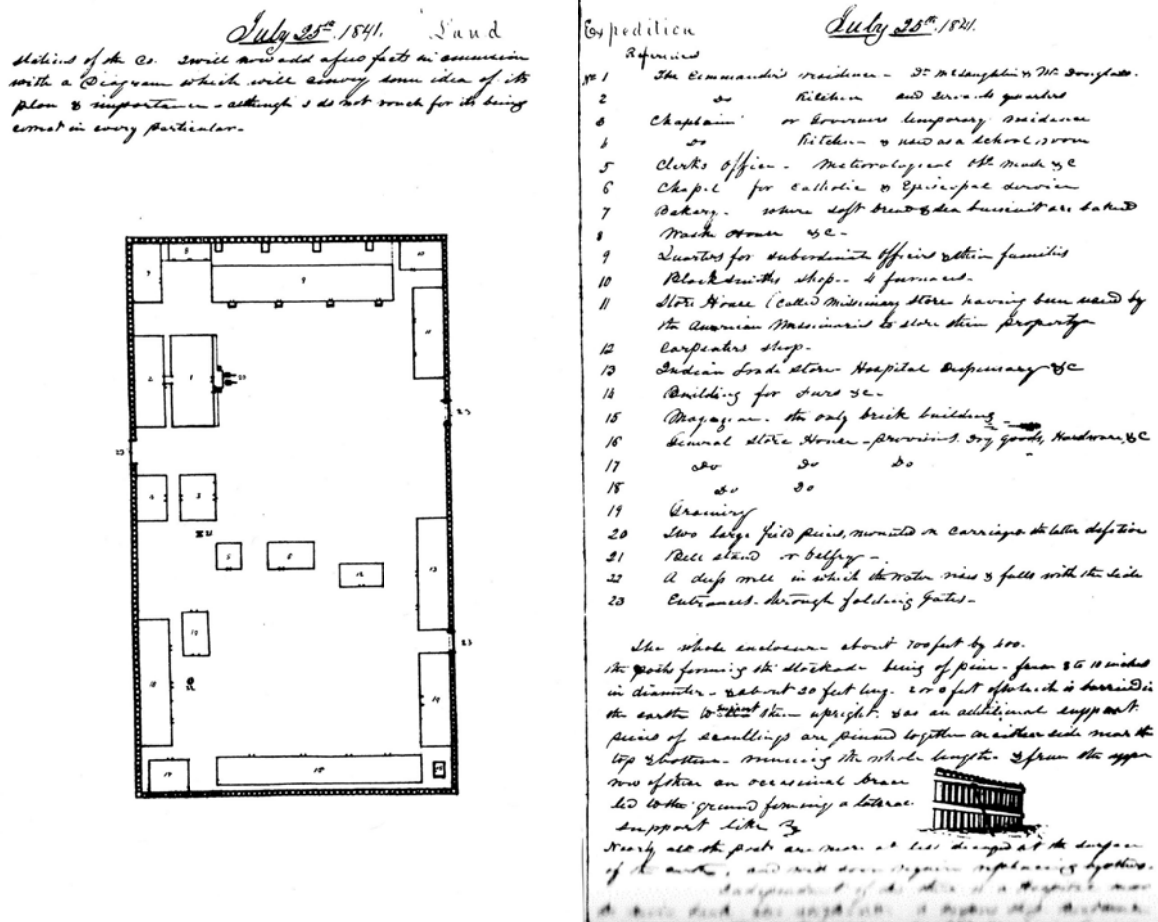 July 25th. 1841. Land
stations of the Co. I will now add a few facts in connexion
with a Diagram which will convey some idea of its
plan & importance - although I do not vouch for its being
correct in every particular -
8
7
9
10
11
2
1
20
23
23
4
3
21
5
6
12
13
19
23
18
22
14
17
16
15
Expedition July 25th. 1841.
References
No 1 The Commander's residence - Dr McLaughlin & Mr. Douglass.
2 Do Kitchen and servants quarters
3 Chaplains or Governors temporary residence
4 Do Kitchen & used as a school room
5 Clerks Office - Meteorological Obs made &c
6 Chapel for Catholic & Episcopal service
7 Bakery - where soft bread & sea buiscuit are baked
8 Wash House &c -
9 Quarters for subordinate officers & their families
10 Blacksmiths shop - 4 furnaces -
11 Store House (called Missionary store having been used by
the American Missionaries to store their property
12 Carpenters shop -
13 Indian Trade Store - Hospital Dispensary &c
14 Building for Furs &c -
15 Magazine - the only brick building
16 General Store House - provisions Dry goods, Hardware, &c
17 Do Do Do
18 Do Do
19 Grainery
20 Two large field peices, mounted on carriages the latter defective
21 Bell stand or belfry -
22 A deep well in which the water rises & falls with the tide
23 Entrances - through folding gates -
The whole enclosure about 700 feet by 400.
the posts forming the stockade being of pine - from 8 to 10 inches
in diameter - & about 20 feet long. 2 or 3 feet of which is burried in
the earth to support them upright. & as an additional support
peices of scantlings are pinned together on either side near the
top & bottom - running the whole length - & from the upper
row of these an occasional brace
led to the ground forming a lateral
support like
Nearly all the posts are more or less decayed at the surface
of the earth, and will soon require replacing by others.
Independent of its there is a Hospital